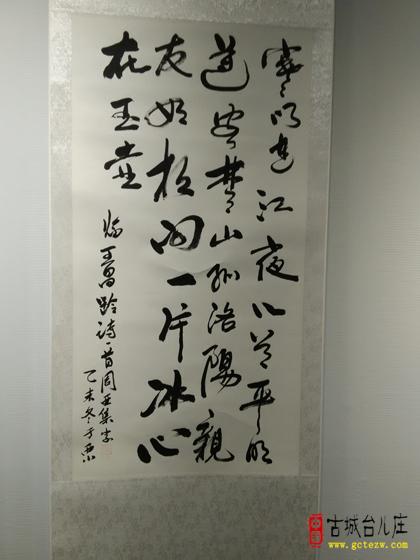 寒雨連江夜入吴平明
送客楚山孤洛陽親
友如相问一片冰心
在玉壶
王昌龄诗一首周亚集
乙未冬于
古城台儿庄
www.gctezw.com